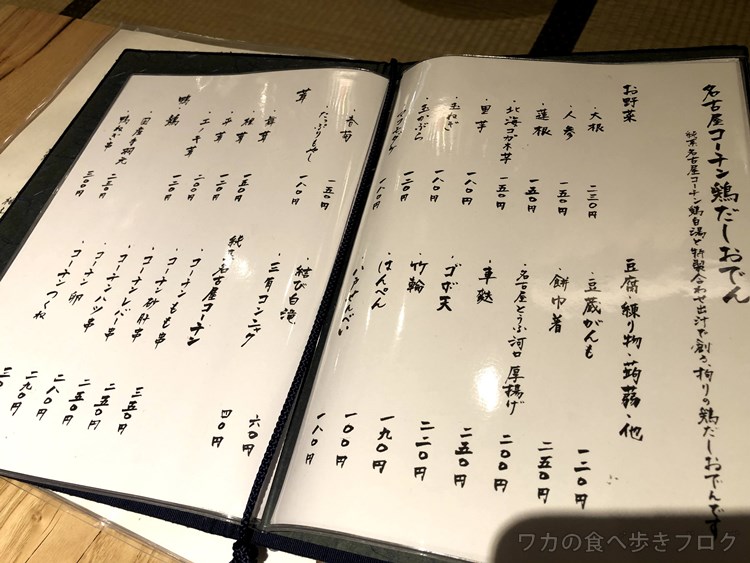 名古屋コーチン鶏だしおでん
純系名古屋コーチン鶏白湯と特製合わせ出汁で創る、拘りの鶏だしおでんです
お野菜
・大根 二三〇円
・人参 一五〇円
・蓮根 一五〇円
・北海コガネ芋 一五〇円
・里芋 一八〇円
・玉ねぎ 一八〇円
・玉かぶら 一二〇円
一八〇円
豆腐・練り物・蒟蒻・他
・豆蔵がんも 一二〇円
・餅巾着 二五〇円
・名古屋とうふ河口 厚揚げ 二〇〇円
・車麩 二五〇円
・ゴボ天 二二〇円
・竹輪 一九〇円
・はんぺん 一〇〇円
一八〇円
・春菊 一五〇円
・たっぷりもやし 一八〇円
茸
・舞茸
・椎茸 一五〇円
・平茸 二〇〇円
・エノキ茸 一二〇円
鴨・鶏
・国産手羽元 二五〇円
・鴨ねぎ串 三〇〇円
・結び白滝 六〇円
・三角コンニャク 四〇円
純系 名古屋コーチン
・コーチンもも串 三五〇円
・コーチン砂肝串 二五〇円
・コーチンレバー串 二五〇円
・コーチンハツ串 二八〇円
・コーチン卵 二九〇円
・コーチンつくね
ワカの食べ歩きブログ